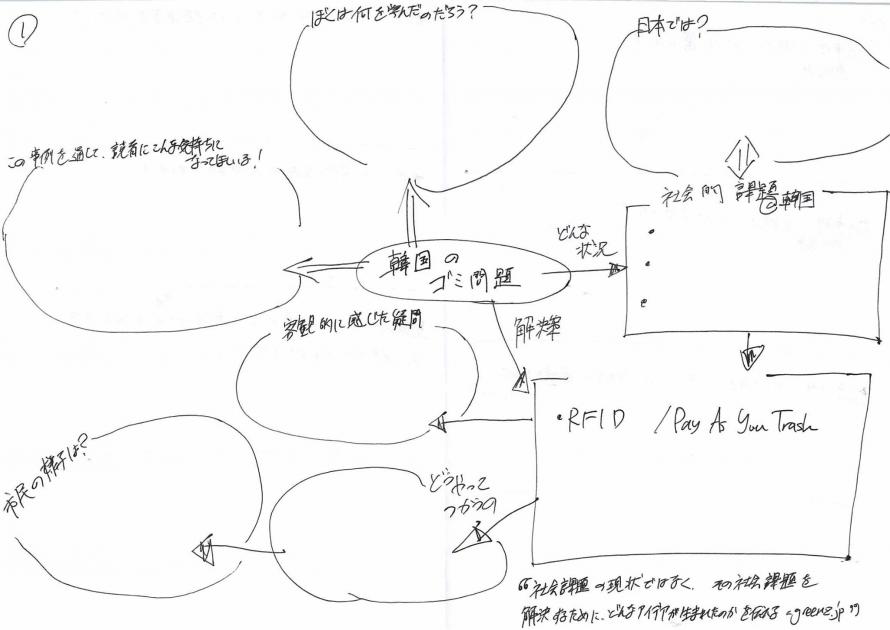 ①
ぼくは何を学んだのだろう?
日本では?
この事例を通して、読者にこんな気持ちに
なってほしい!
社会的課題
@韓国
どんな
状況
韓国の
ゴミ問題
解決策
客観的に感じた疑問
・RFID / Pay As You Trash
市民の様子は?
どうやって
つかうの
"社会課題の現状ではなく、その社会課題を
解決するために、どんなアイデアが生まれたのかを伝える greenz.jp"